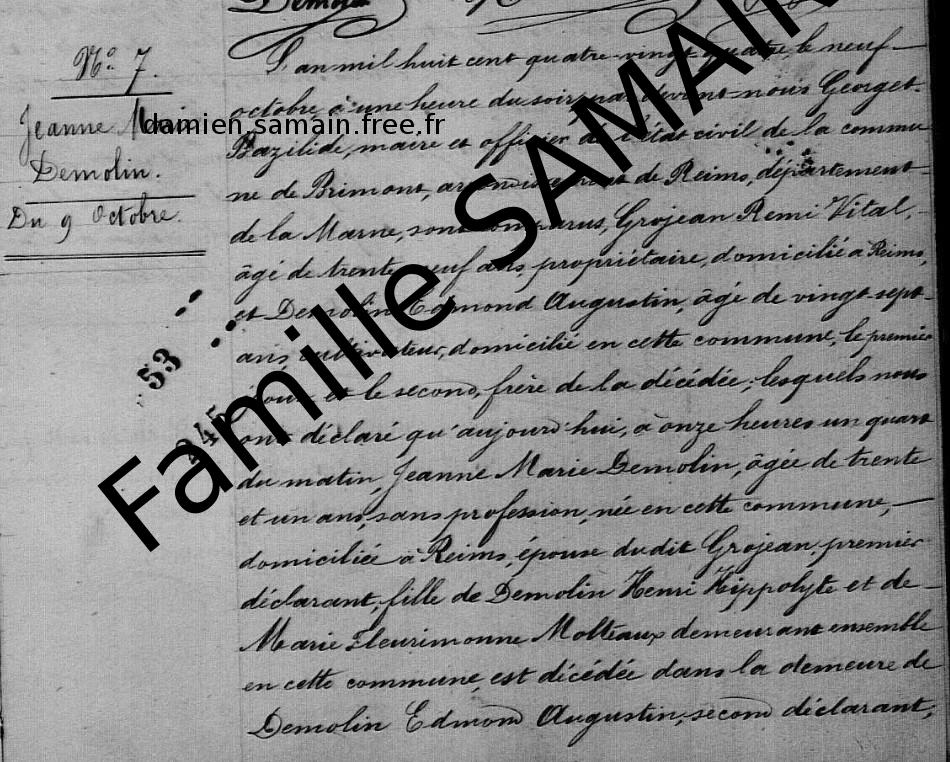 Demolin
N.° 7.
Jeanne Marie
Demolin.
Du 9 Octobre.
53
245
L'an mil huit cent quatre-vingt quatre le neuf
octobre, à une heure du soir, par devant nous Georget
Bazilide, maire et officier de l'état civil de la commu-
ne de Brimont, arrondissement de Reims, département
de la Marne, sont comparus, Grojean Remi Vital,
âgé de trente neuf ans, propriétaire, domicilié à Reims,
et Demolin Edmond Augustin, âgé de vingt-sept
ans, cultivateur, domicilié en cette commune, le premier
époux et le second, frère de la décédée; lesquels nous
ont déclaré qu'aujourd'hui, à onze heures un quart
du matin, Jeanne Marie Demolin, âgée de trente
et un ans, sans profession, née en cette commune,
domiciliée à Reims, épouse dudit Grojean, premier
déclarant, fille de Demolin Henri Hippolyte et de
Marie Fleurimonne Molteaux demeurant ensemble
en cette commune, est décédée dans la demeure de
Demolin Edmond Augustin, second déclarant,
damien.samain.free.fr
Famille SAMAIN